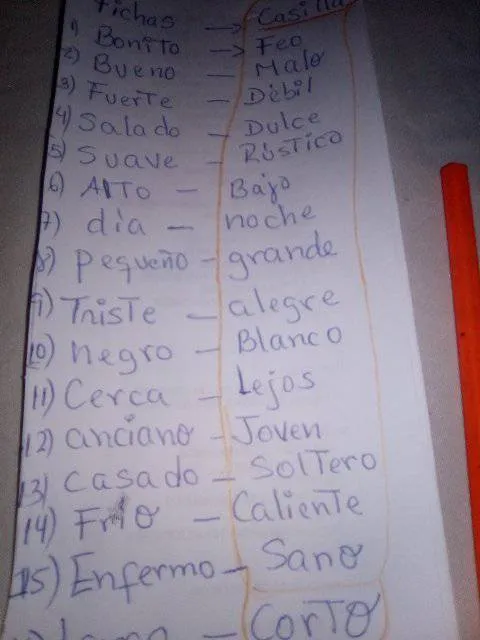 Fichas → Casilla
1) Bonito → Feo
2) Bueno — Malo
3) Fuerte — Débil
4) Salado — Dulce
5) Suave — Rústico
6) Alto — Bajo
7) día — noche
8) Pequeño — grande
9) Triste — alegre
10) negro — Blanco
11) Cerca — Lejos
12) anciano — Joven
13) Casado — Soltero
14) Frio — Caliente
15) Enfermo — Sano
— Corto